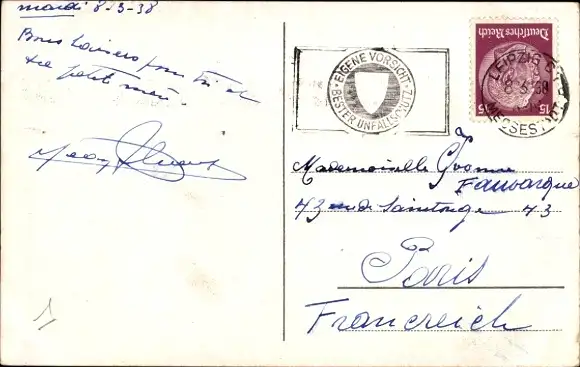 mardi 8-3-38
Bons baisers pour toi et
ta petite mère.
EIGENE VORSICHT
BESTER UNFALLSCHUTZ
Deutsches Reich
15 15
LEIPZIG
8.3.38
MESSESTADT
Mademoiselle Yvonne
Fauvarque
43 rue de Saintonge 43
Paris
Francreich